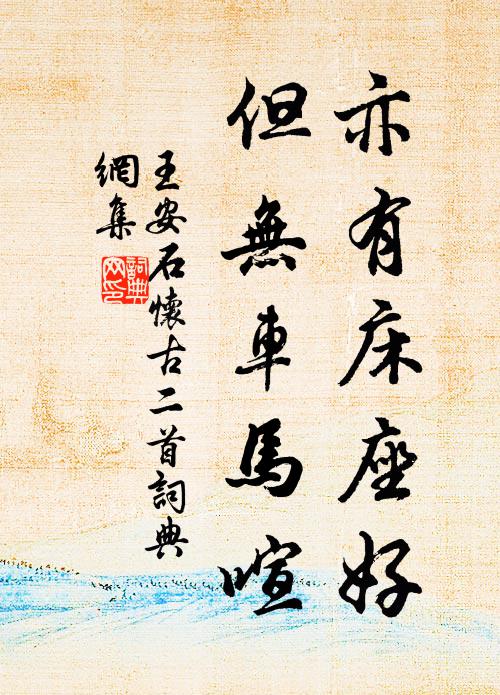 亦有床座好
但無車馬喧
王安石懷古二首詞典
網集
詞典
网印